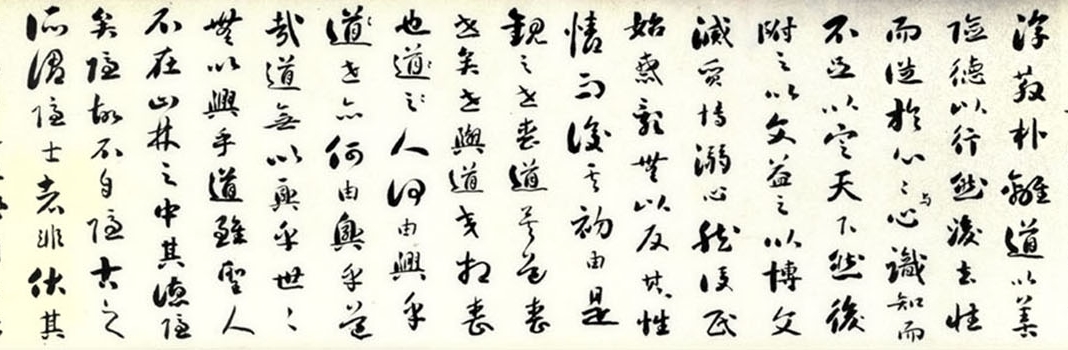 淳散朴離道以善
險德以行然後去性
而從於心〻與心識知而
不足以定天下然後
附之以文益之以博文
滅質博溺心然後民
始惑亂無以反其性
情而復其初由是
觀之世喪道矣道喪
世矣世與道交相喪
也道之人何由興乎
道世亦何由興乎道
哉道無以興乎世〻
無以興乎道雖聖人
不在山林之中其德隱
矣隱故不自隱古之
所謂隱士者非伏其